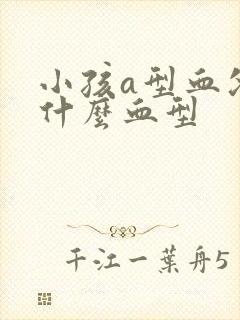 小孩a型血
什麼血型
千江一葉舟5